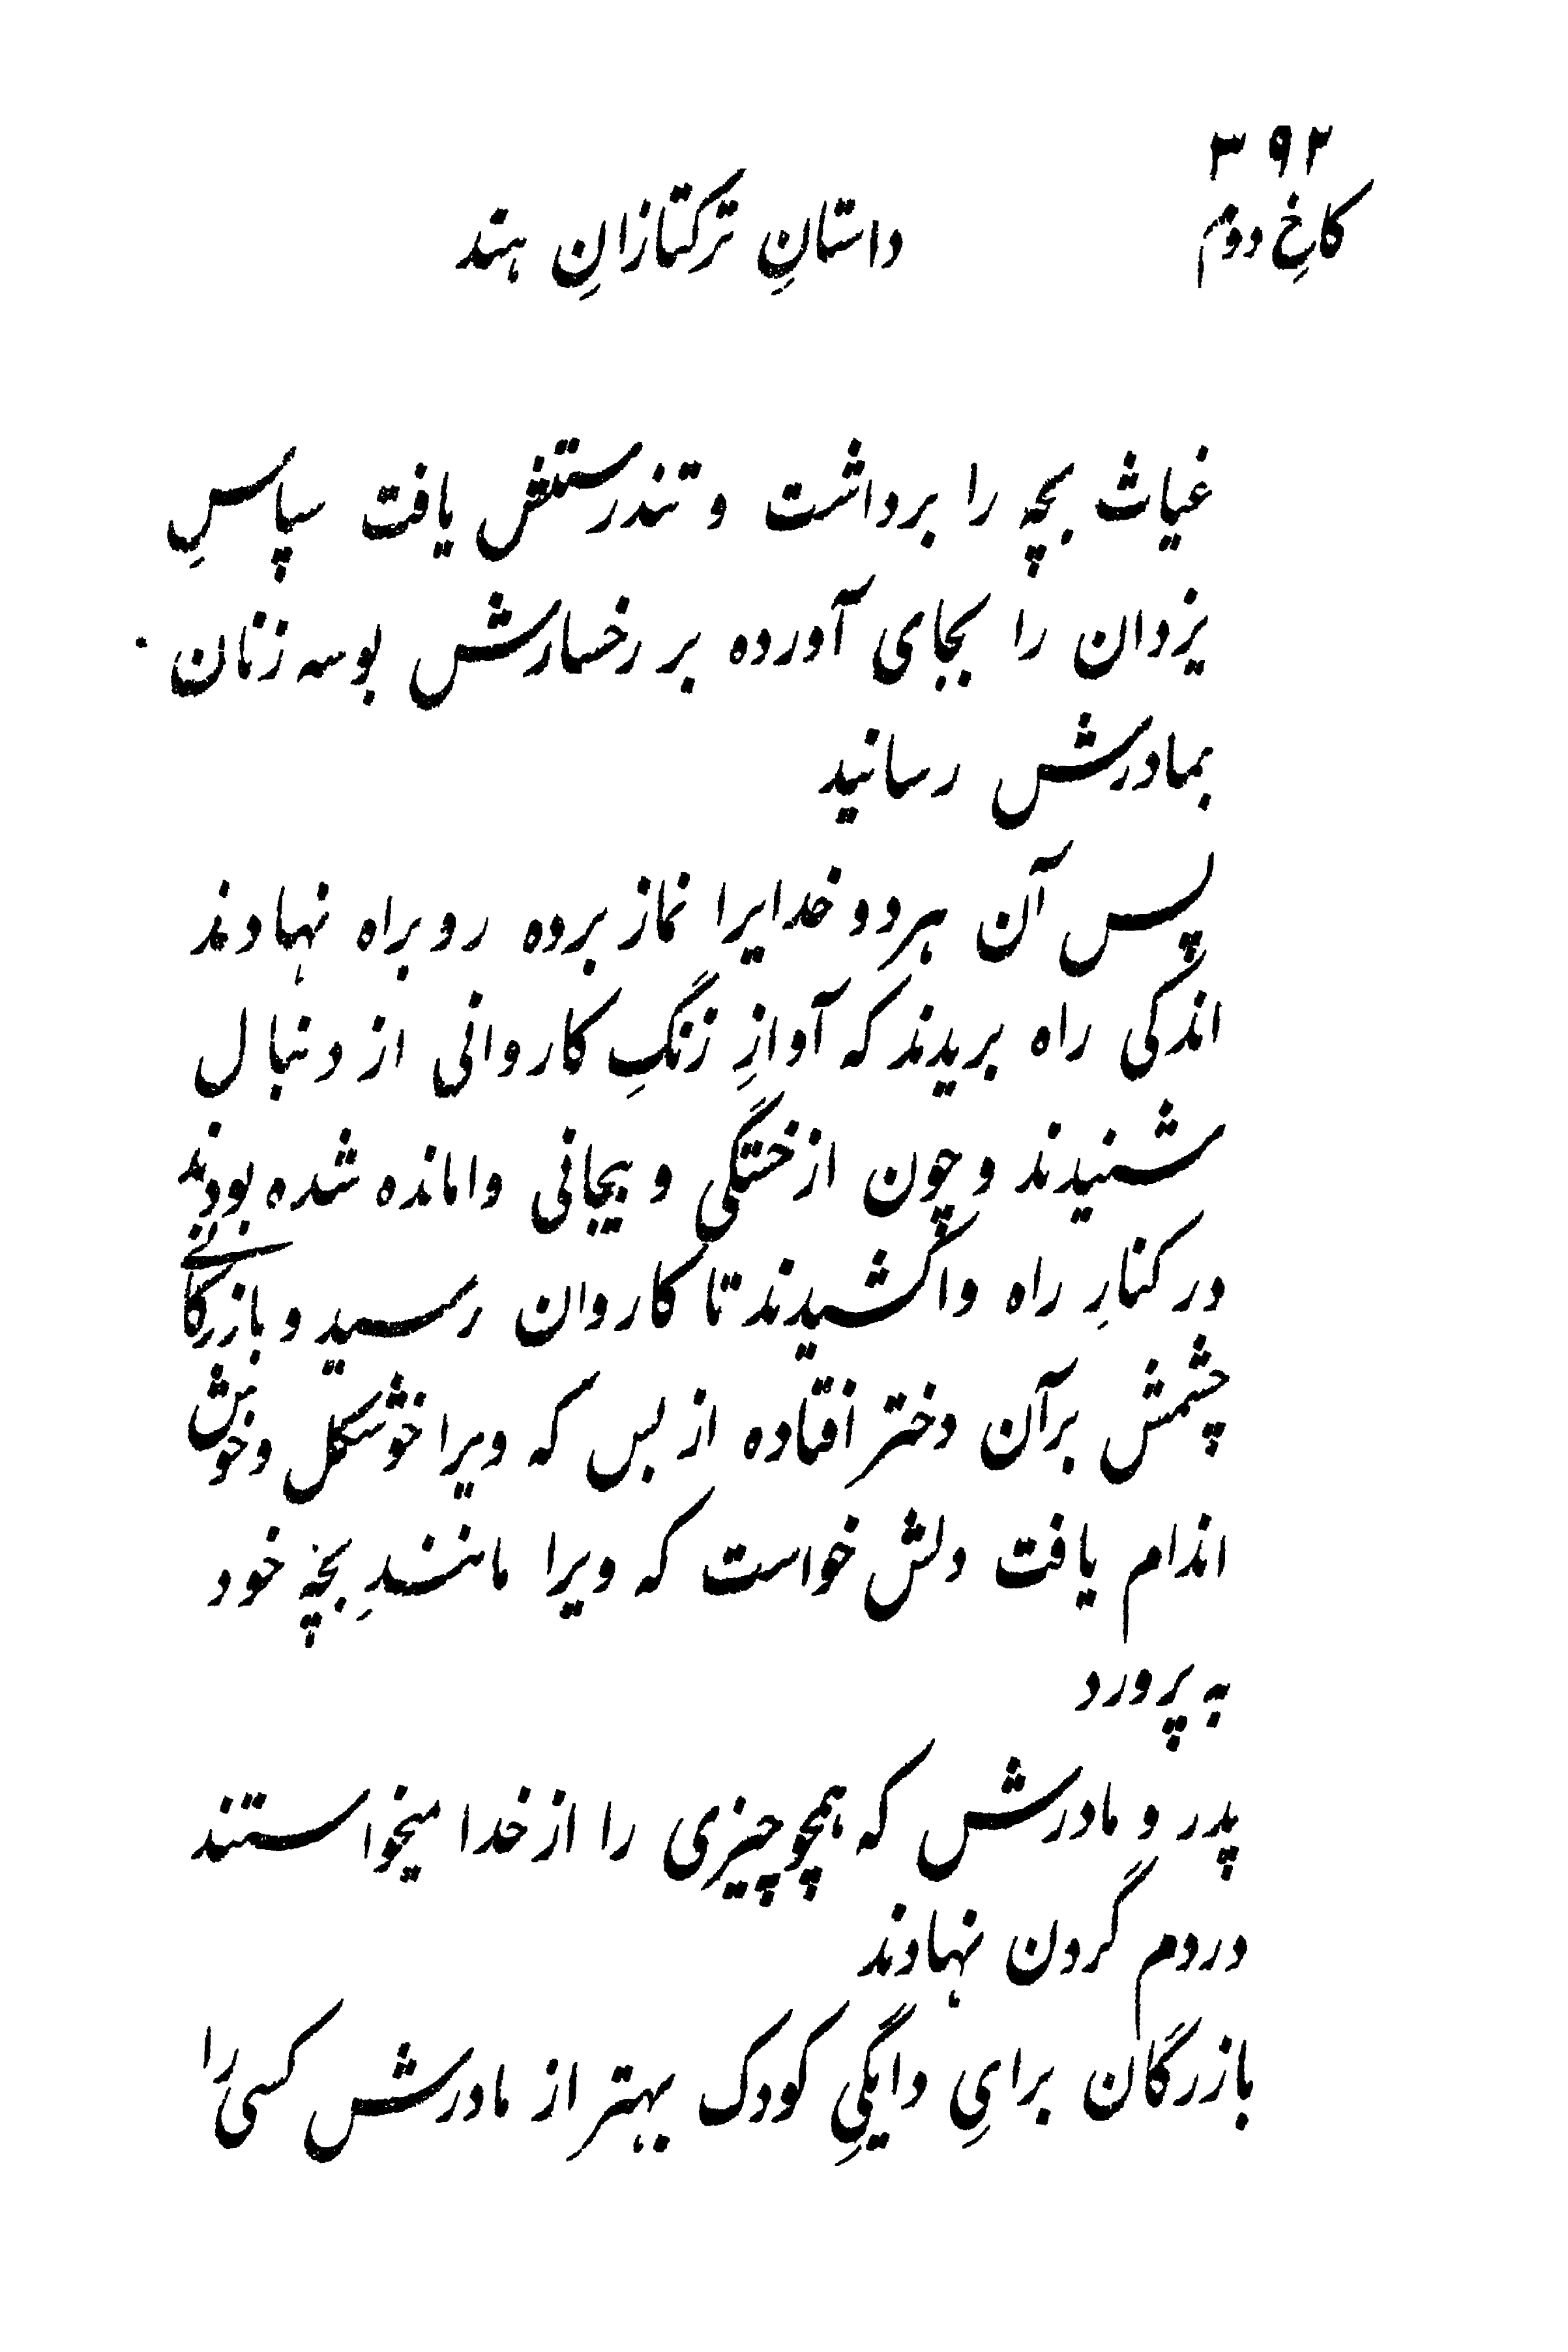 ۳۹۲
کاخِ دوم
داستانِ ترکتازانِ هند
غیاث بچه را برداشت و تندرستش یافت سپاسِ
یزدان را بجای آورده بر رخسارش بوسه زنان
بمادرش رسانید
پس آن هردو خدایرا نماز برده رو براه نهادند
اندکی راه بریدند که آوازِ زنگِ کاروانی از دنبال
شنیدند و چون از خستگی و بیجانی وامانده شده بودند
در کنارِ راه واکشیدند تا کاروان رسید و بازرگانے
چشمش بر آن دختر افتاده از بس که ویرا خوشکل و خوش
اندام یافت دلش خواست که ویرا مانندِ بچهٔ خود
به پرورد
پدر و مادرش که همچو چیزی را از خدا میخواستند
دردم گردن نهادند
بازرگان برایِ دایگیِ کودک بهتر از مادرش کسی را